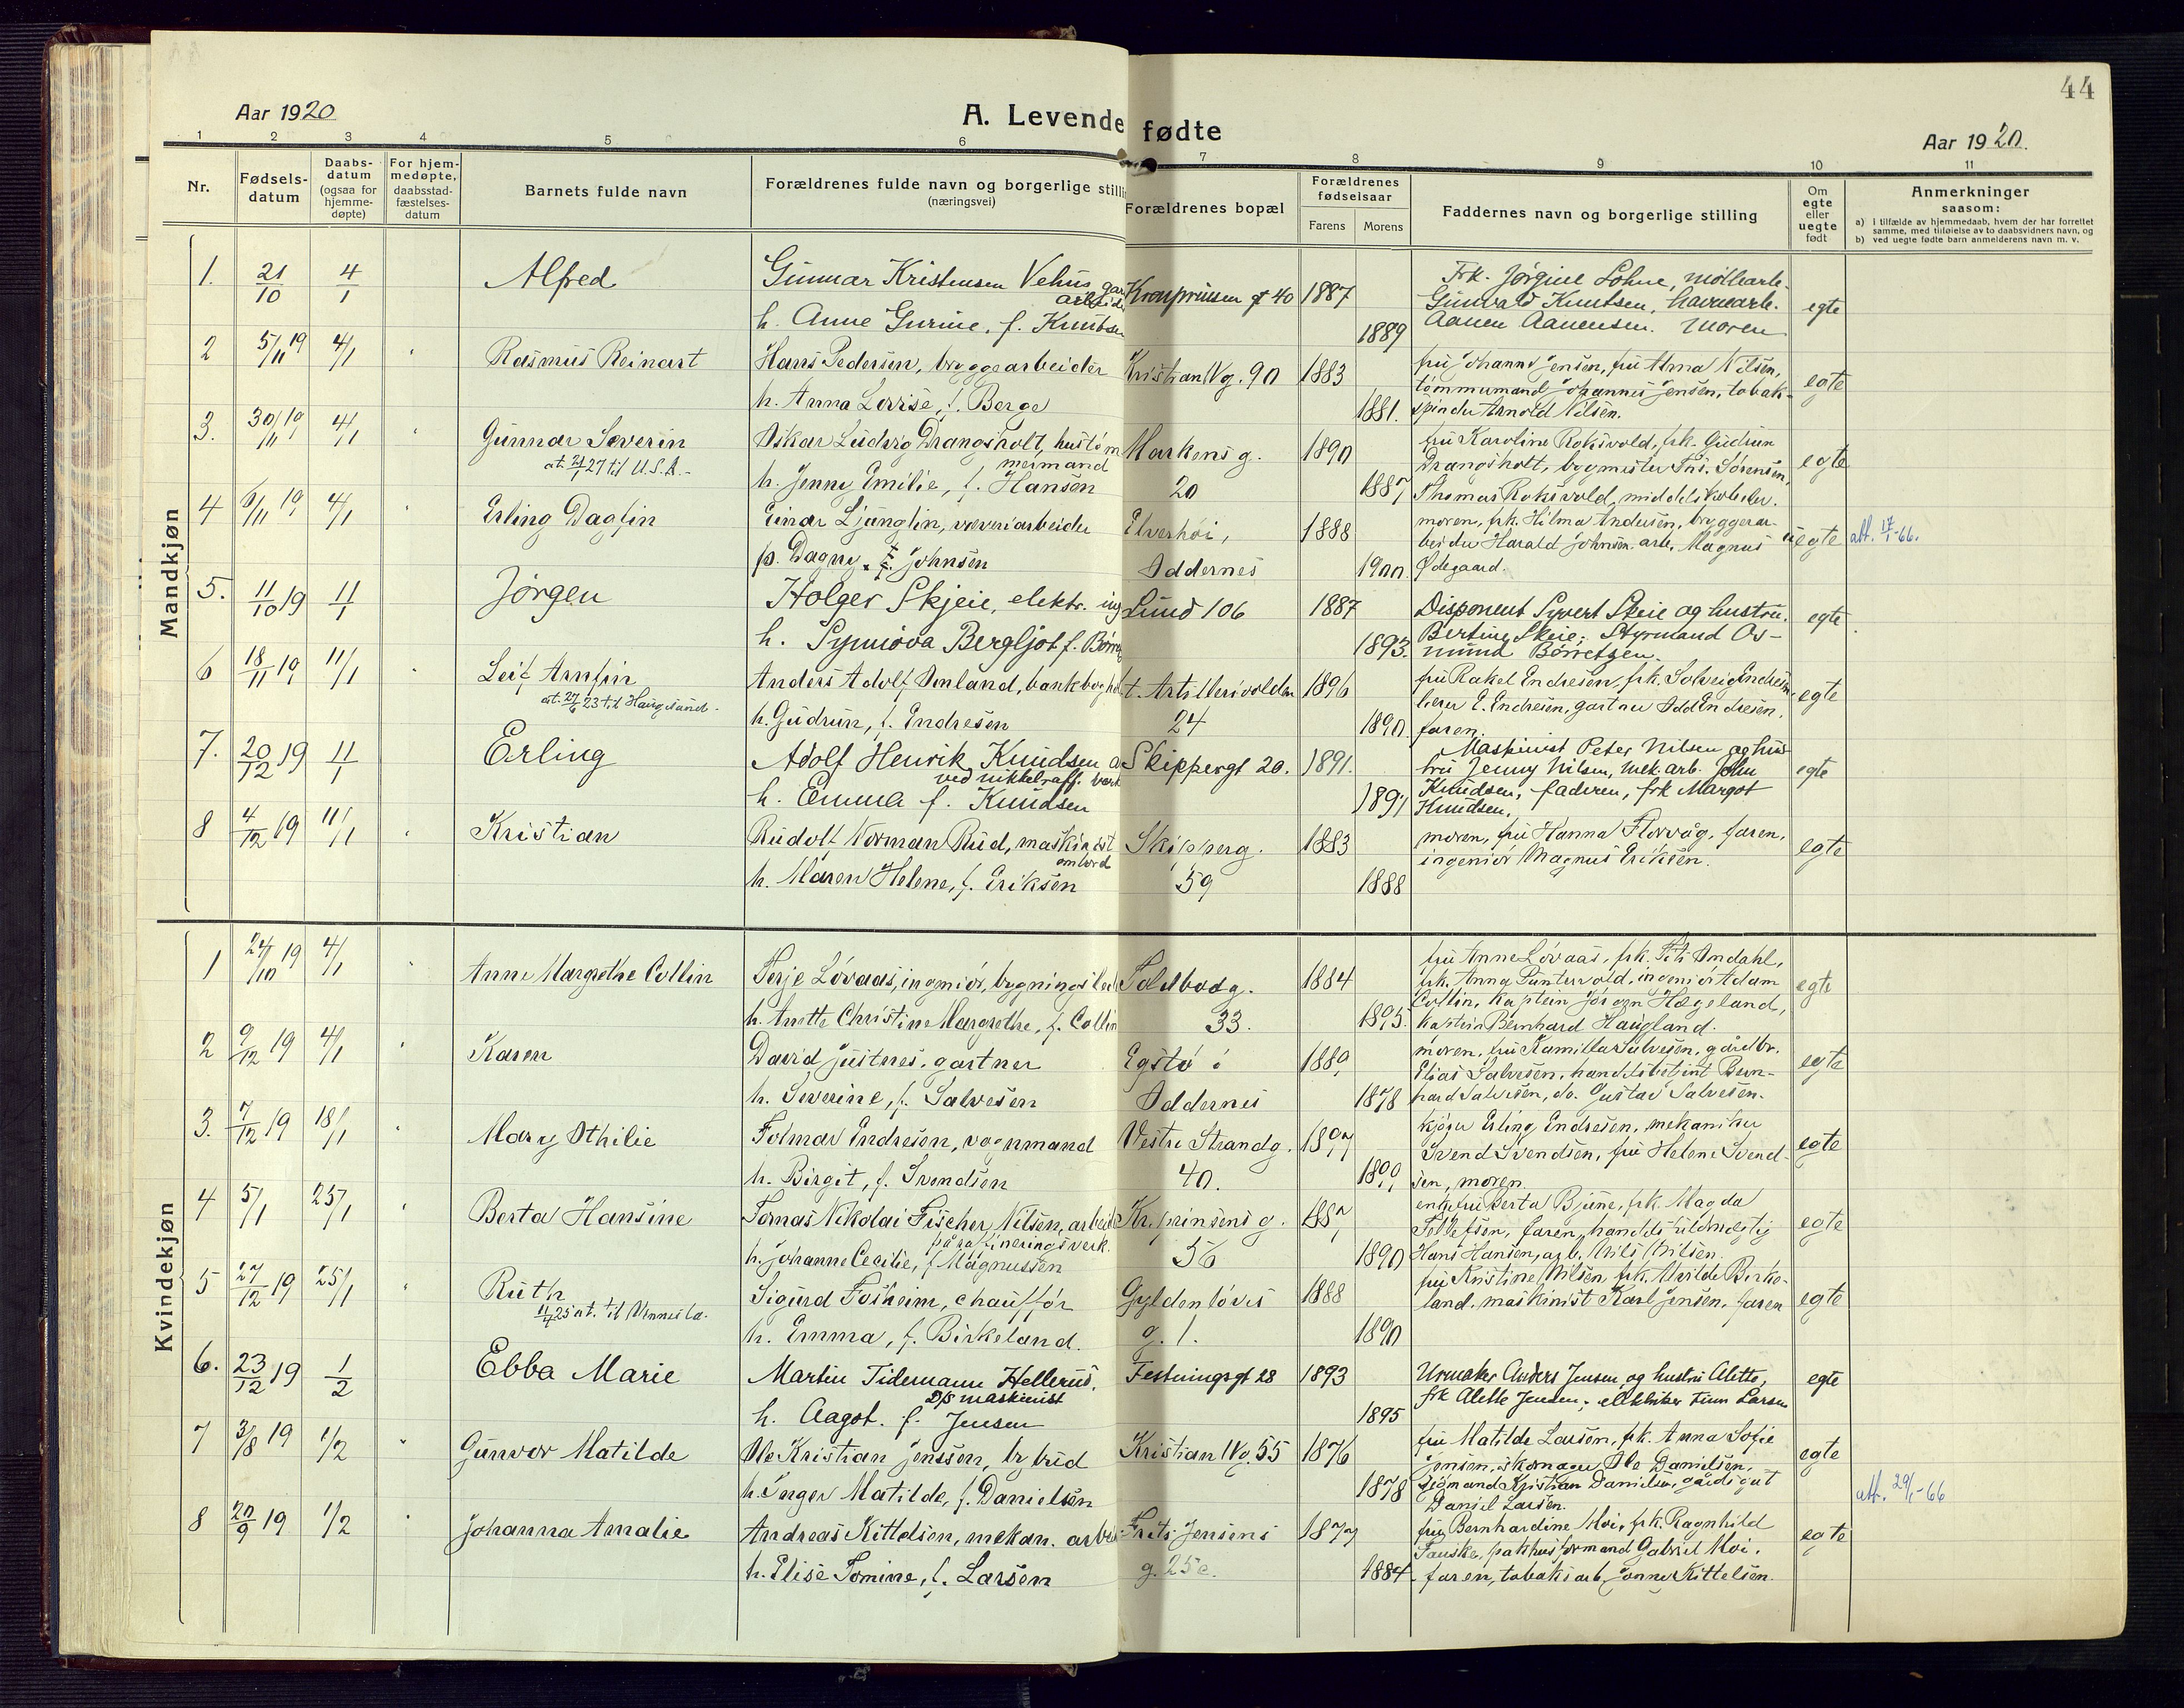 44
Aar 1920
A. Levende fødte
Aar 1920.
1 2 3 4 5 6 7 8 9 10 11
Nr.
Fødsels-
datum
Daabs-
datum
(ogsaa for
hjemme-
døpte)
For hjem-
medøpte,
daabsstad-
fæstelses-
datum
Barnets fulde navn
Forældrenes fulde navn og borgerlige stilli
(næringsvei)
Forældrenes bopæl
Forældrenes
fødselsaar
Farens Morens
Faddernes navn og borgerlige stilling
Om
egte
eller
uegte
født
Anmerkninger
saasom:
a) i tilfælde av hjemmedaab, hvem der har forrettet
samme, med tilføielse av to daabsvidners navn, og
b) ved uegte fødte barn anmelderens navn m. v.
Mandkjøn
1. 21/10 4/1 Alfred
Gunnar Kristensen Vehus
h. Anne Gurine, f. Knutsen
Kronprinsen gt 40 1887
1889
Frk. Jørgine Lohne, møllearb.
Gunvald Knutsen, havnearb.
Aanen Aanensen. Moren
egte
2 5/11 19 4/1 Rasmus Reinart
Hans Pedersen, bryggearbeider
h. Anna Lovise, f. Berge
Kristian IV g. 90 1883
1881.
fru Johanne Jensen, fru Alma Nilsen,
tømmermand Johannes Jensen, tobak-
spinder Arnold Nilsen.
egte
3. 30/11 19 4/1 Gunnar Severin
at. 21/1 27 til U.S.A.-
Oskar Ludvig Drangsholt, hustøm
mermand
h. Jenny Emilie, f. Hansen
Markens g.
20
1890
1887
fru Karoline Roksvold, frk. Gudrun
Drangsholt, bygmester Fns. Sørensen,
Thomas Roksvold, middelskoleelev.
egte
4 6/11 19 4/1 Erling Dagfin
Einar Ljunglin, væveriarbeider
p. Dagny Johnsen
Elverhøi,
Oddernes
1888
1900.
moren, frk. Hilma Andersen, bryggerar-
beider Harald Johnsen. arb. Magnus
Ødegaard.
uegte
att. 17/1-66.
5. 11/10 19 11/1 Jørgen
Holger Skjeie, elektr. ing
h. Synnøva Bergljot f. Børre
Lund 106 1887
1893.
Disponent Syvert Skeie og hustru.
Bertine Skeie; Styrmand Os-
mund Børretzen.
egte
6 18/11 19 11/1 Leif Arnfin
at. 27/6 23 til Haugesund.
Anders Adolf Omland, bankbogh
h. Gudrun, f. Endresen
t. Artillerivolden
24
1896
1890.
fru Rakel Endresen, frk. Solveig Endresen,
lærer E. Endresen, gartner Odd Endresen,
faren.
egte
7. 20/12 19 11/1 Erling
Adolf Henrik Knudsen a
ved nikkelraff. verk
h. Emma f. Knudsen
Skippergt 20. 1891.
1891
Maskinist Peter Nilsen og hus-
tru Jenny Nilsen, mek. arb. John
Knudsen, faderen, frk Margot
Knudsen.
egte
8 4/12 19 11/1 Kristian
Rudolf Norman Rud, maskinist
ombord
h. Maren Helene, f. Eriksen
Skipperg.
59
1883
1888
moren, fru Hanna Florvåg, faren,
ingeniør Magnus Eriksen.
egte
Kvindekjøn
1 24/10 19 4/1 Anne Margrethe Collin
Terje Løvaas, ingeniør, bygnings
h. Anette Christine Margrethe, f. Collin
Toldbodg.
33.
1884
1895.
fru Anne Løvaas, frk. Omdahl,
frk. Anna Puntervold, ingeniør Adam
Collin, kaptein Jørgen Hægeland,
kaptein Bernhard Haugland.
egte
2 9/12 19 4/1 Karen
David Justnes, gartner
h. Severine, f. Salvesen
Egstø i
Oddernes
1880
1878
moren, fru Kamilla Salvesen, gårdbr.
Elias Salvesen, handelsbetjent Bern-
hard Salvesen, do. Gustav Salvesen.
egte
3. 7/12 19 18/1 Mary Othilie
Tolmar Endresen, vognmand
h. Birgit, f. Svendsen
Vestre Strandg.
40.
1897
1899
kjører Erling Endresen, mekaniker
Svend Svendsen, fru Helene Svend-
sen, moren
egte
4 5/1 25/1 Berta Hansine
Tomas Nikolai Fischer Nilsen, arbeid
på raffineringsverk.
h. Johanne Cecilie, f. Magnussen
Kr.prinsens g.
56
1890
enkefru Berta Bjune, frk. Magda
Tollefsen, faren, handelsfuldmegtig
Hans Hansen, arb. Nils Nilsen.
egte
5 27/12 19 25/1 Ruth
11/4 25 at. til Vennesla.
Sigurd Fosheim, chauffør
h. Emma, f. Birkeland.
Gyldenløves
g. 1.
1888
1890
fru Kristine Nilsen, frk. Alvilde Birke-
land, maskinist Karl Jensen, faren
egte
6. 23/12 19 1/2 Ebba Marie
Martin Tidemann Hellerud,
D/S maskinist
h. Aagot. f. Jensen
Festningsgt 28 1893
1895
Urmaker Anders Jensen og hustru Alette,
frk Alette Jensen, elektriker Finn Larsen
egte
7 3/8 19 1/2 Gunvor Matilde
Ole Kristian Jenssen, bybud
h. Inger Matilde, f. Danielsen
Kristian IV g. 55 1876
1878
fru Matilde Larsen, frk. Anna Sofie
Jensen, skomager Ole Danielsen,
sjømand Kristian Danielsen, gårdsgut
Daniel Larsen.
egte
att. 29/1-66
8 20/9 19 1/2 Johanna Amalie
Andreas Kittelsen, mekan. arbei
h. Elise Tomine, f. Larsen
Frits Jensens
g. 25c.
1877
1884
fru Bernhardine Moi, frk. Ragnhild
Tauske, pakhusformand Gabriel Moi,
faren, tobaksarb. Jonne Kittelsen.
egte